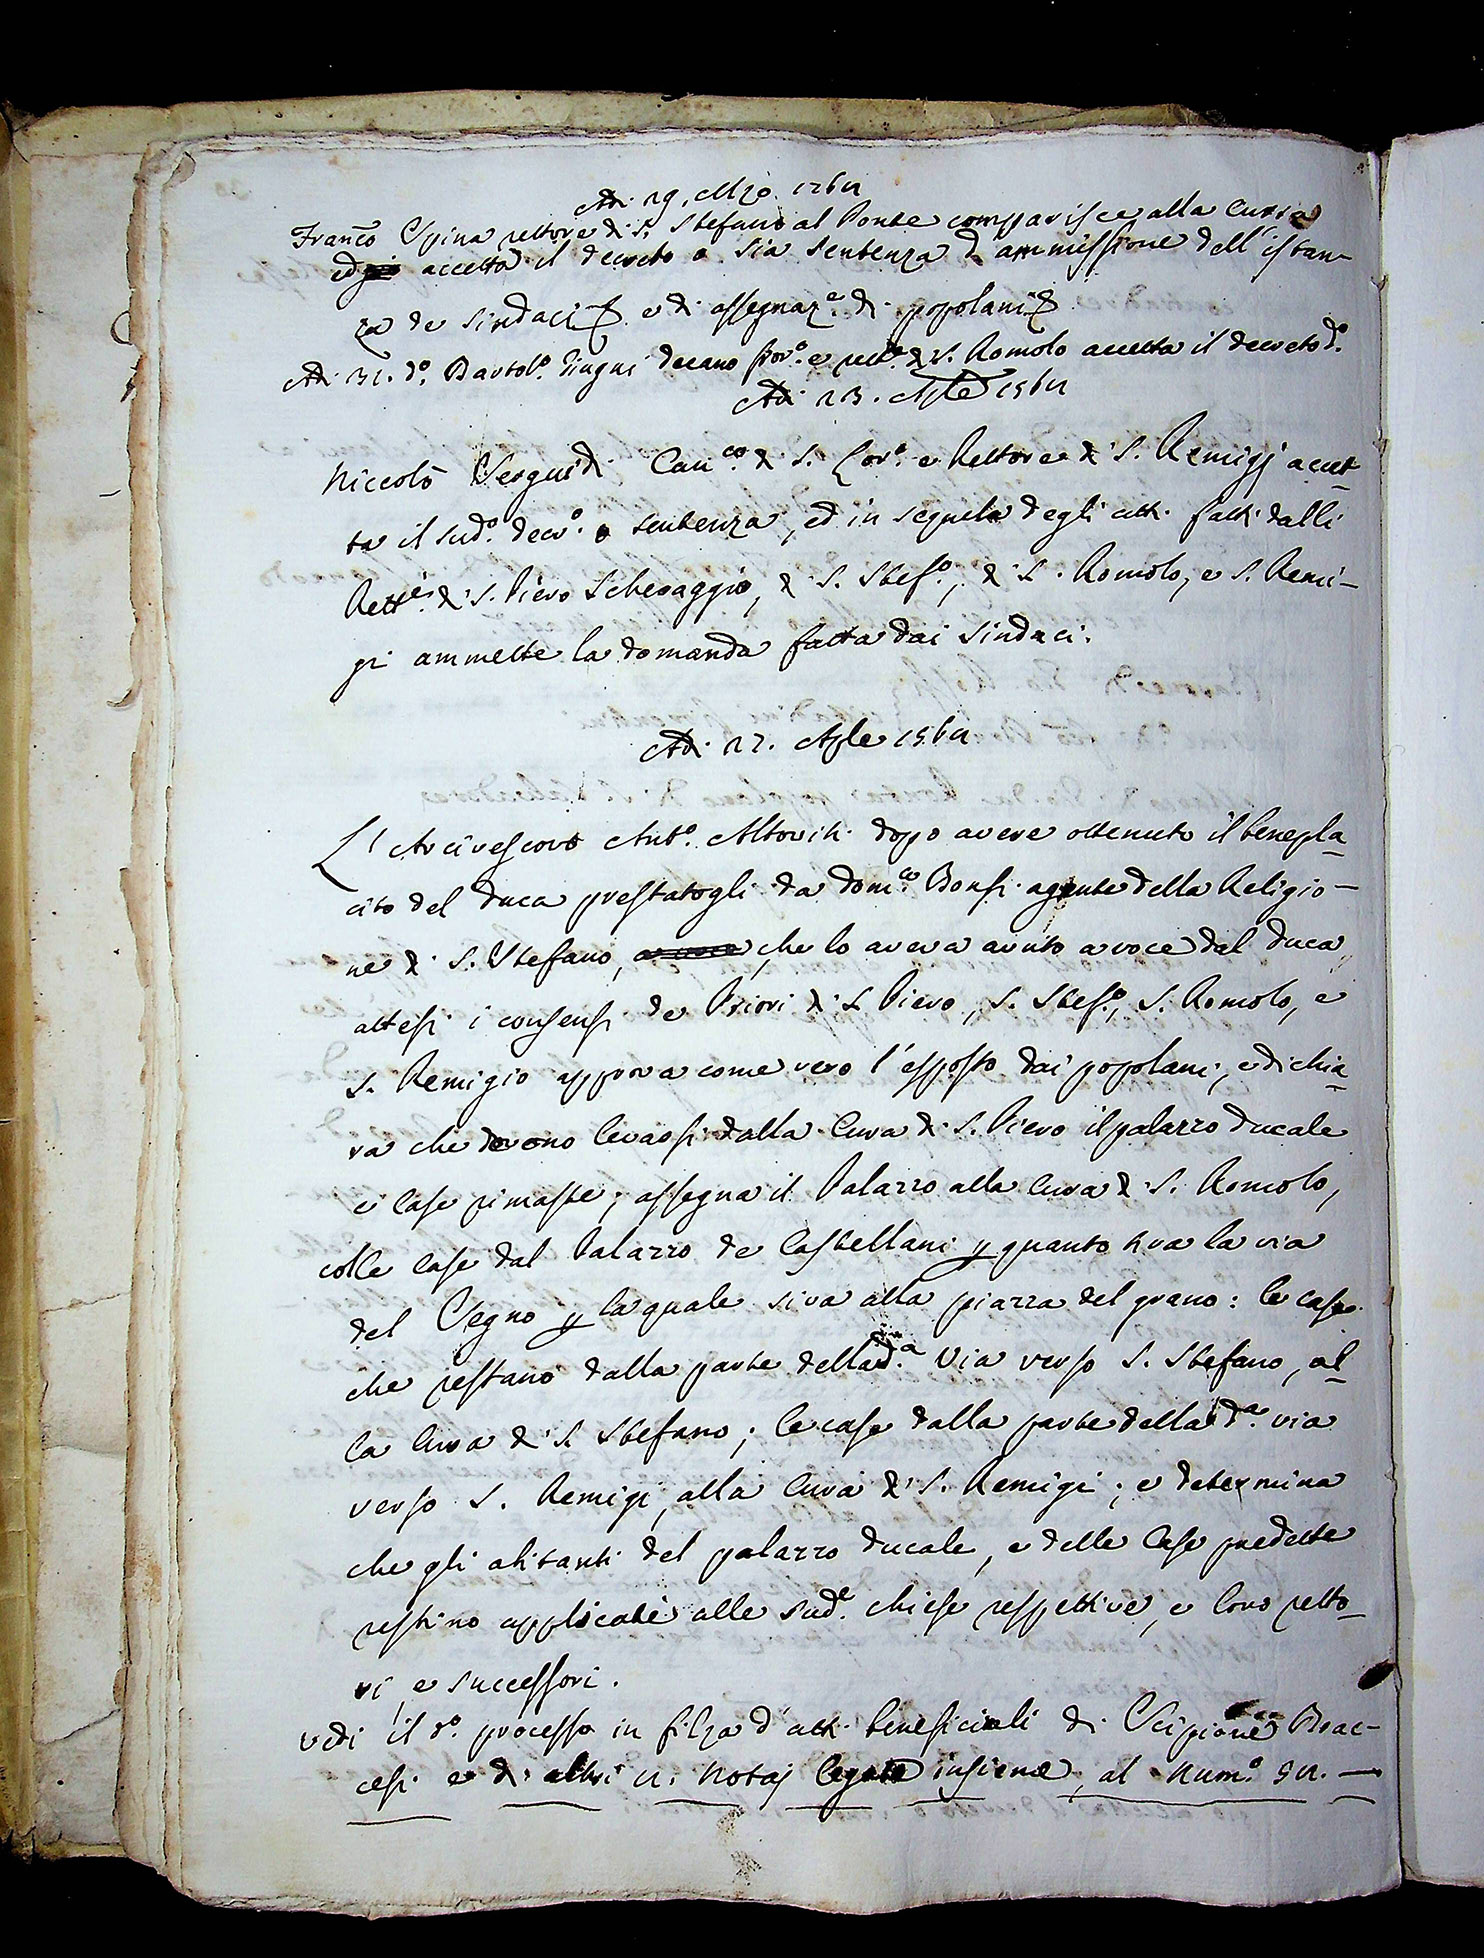 Adì 29. Mzo 1564
Franco Spina rettore di S. Stefano al Ponte comparisce alla Curia
ed accetta il decreto o sia sentenza d'ammissione dell'istan-
za de Sindaci e di assegnaz.e di popolani
Adì 31. do. Bartolo. decano prore. e rettre. di S. Romolo accetta il decreto do.
Adì 23. Aple 1564
Niccolò Canco. di S. Loro. e Rettore di S. Remigj accet-
ta il sudo. decro. o sentenza, ed in sequela degli atti fatti dalli
Retti. di S. Piero Scheraggio, di S. Stefo., di S. Romolo, e S. Remi-
gi ammette la domanda fatta dai Sindaci.
Adì 27. Aple 1564
L'Arcivescovo Anto. Altoviti dopo avere ottenuto il benepla-
cito del Duca prestatogli da Domco. Bonsi agente della Religio-
ne di S. Stefano, che lo aveva avuto a voce dal Duca,
attesi i consensi de Priori di S. Piero, S. Stefo., S. Romolo, e
S. Remigio approva come vero l'esposto dai popolani, e dichia-
ra che devono levarsi dalla Cura di S. Piero il palazzo Ducale
e case rimaste; assegna il Palazzo alla Cura di S. Romolo,
colle case dal Palazzo de Castellani p quanto tira la via
del Segno p la quale si va alla piazza del grano: le case
che restano dalla parte della da. via verso S. Stefano, al-
la Cura di S. Stefano; le case dalla parte della da. via
verso S. Remigi, alla Cura di S. Remigi; e determina
che gli abitanti del palazzo Ducale, e delle Case predette
restino applicati alle sude. chiese respettive, e loro retto-
ri, e successori.
Vedi il do. processo in filza d'atti beneficiali di Scipione Brac-
cesi e di altri 4. Notaj legate insieme, al Numo. 54.